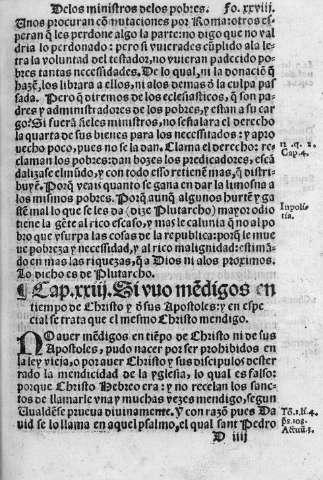 Delos ministros delos pobres. Fo. xxviii.
Unos procuran cõ mutaciones por Roma: otros es-
peran q̃ les perdone algo la parte: no digo que no val
dria lo perdonado: pero si vuierades cũplido a la le-
tra la voluntad del testador, no vuieran padecido po-
bres tantas necessidades. De lo qual, ni la donaciõ q̃
hazẽ, los librara a ellos, ni alos demas ð la culpa pas
sada. Pero q̃ diremos de los ecclesiasticos, q̃ son pa-
dres y administradores de los pobres, y estan a su car
go: Si fuerã fieles ministros, no señalara el derecho
la quarta de sus bienes para los necessitados: y apro
uecho poco, pues no se la dan. Clama el derecho: re-
claman los pobres: dan bozes los predicadores, escã
dalizase el mũdo, y con todo esso retienẽ mas, q̃ distri-
buyẽ. Porq̃ veais quanto se gana en dar la limosna a
los mismos pobres. Porq̃ aunq̃ algunos hurtẽ y ga
stẽ mal lo que se les da (dize Plutarcho) mayor odio
tiene la gẽte al rico escaso, y mas le calunia q̃ no al po
bro que vsurpa las cosas de la republica: porq̃ le mue
ue pobreza y necessidad, y al rico malignidad: estimã-
do en mas las riquezas, q̃ a Dios ni a los proximos.
Lo dicho es de Plutarcho.
n. q. 2.
Cap. 4.
In poli-
tia.
¶ Cap. xxiij. Si vuo mẽdigos en
tiempo de Christo y ð sus Apostoles: y en espe
cial se trata que el mesmo Christo mendigo.
NO auer mẽdigos en tiẽpo de Christo ni de sus
Apostoles, pudo nacer por ser prohibidos en
la ley vieja, o por auer Christo y sus discipulos dester
rado la mendicidad de la yglesia, lo qual es falso:
porque Christo Hebreo era: y no recelan los sanc-
tos de llamarle vna y muchas vezes mendigo, segun
Ualdẽse prueua diuinamente. Y con razõ pues Da
uid se lo llama en aquel psalmo, el qual sant Pedro
Tõ. 1. li. 4.
ps. 108.
Actuũ. 1.
D iiij